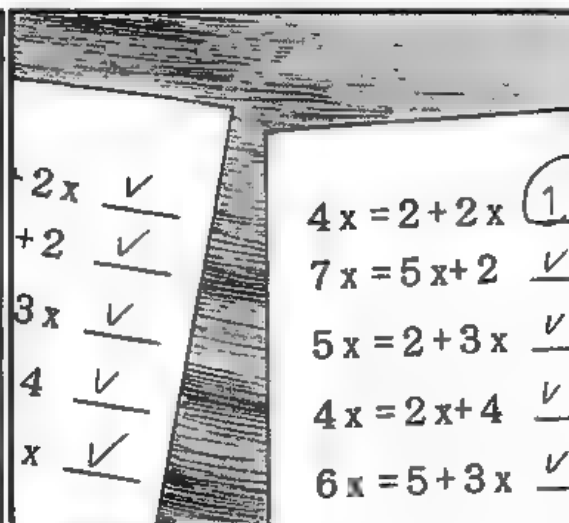 +2x ✓
+2 ✓
3x ✓
4 ✓
x ✓
4x = 2+2x 1.
7x = 5x+2 ✓
5x = 2+3x ✓
4x = 2x+4 ✓
6x = 5+3x ✓